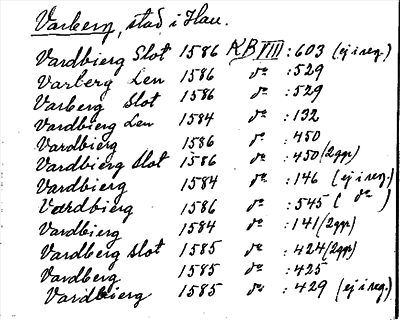 Varberg, stad i Hall.
Vardbierg Slot 1586 KB VIII : 603 (ej i reg.)
Varberg Len 1586 do : 529
Varberg Slot 1586 do : 529
Vardbierg Len 1584 do : 132
Vardbierg 1586 do : 450
Vardbierg Slot 1586 do : 450 (2 ggr)
Vardbierg 1584 do : 146 (ej i reg.)
Vardbierg 1586 do : 545 ( do )
Vardbierg 1584 do : 141 (2 ggr)
Vardberg slot 1585 do : 424 (2 ggr)
Vardberg 1585 do : 425
Vardbierg 1585 do : 429 (ej i reg.)